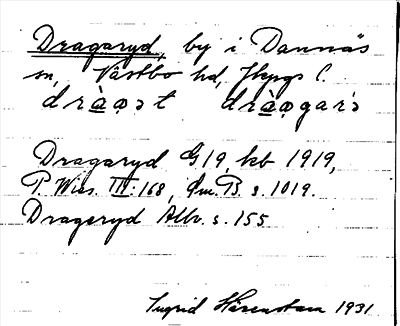 Dragaryd, by i Dannäs
sn, Västbo hd, Jkpgs l.
dràa̤ət dràa̤gar's
Dragaryd G19, kb 1919,
P. Wies. III:168, Sm.B s. 1019.
Drageryd Allv. s. 155
Ingrid Härenstam 1931